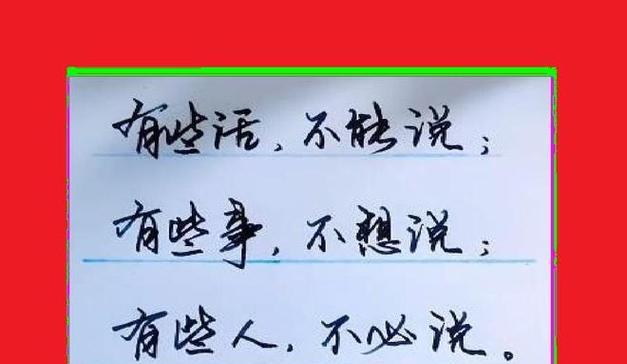 有些话,不能说;
有些事,不想说;
有些人,不必说。